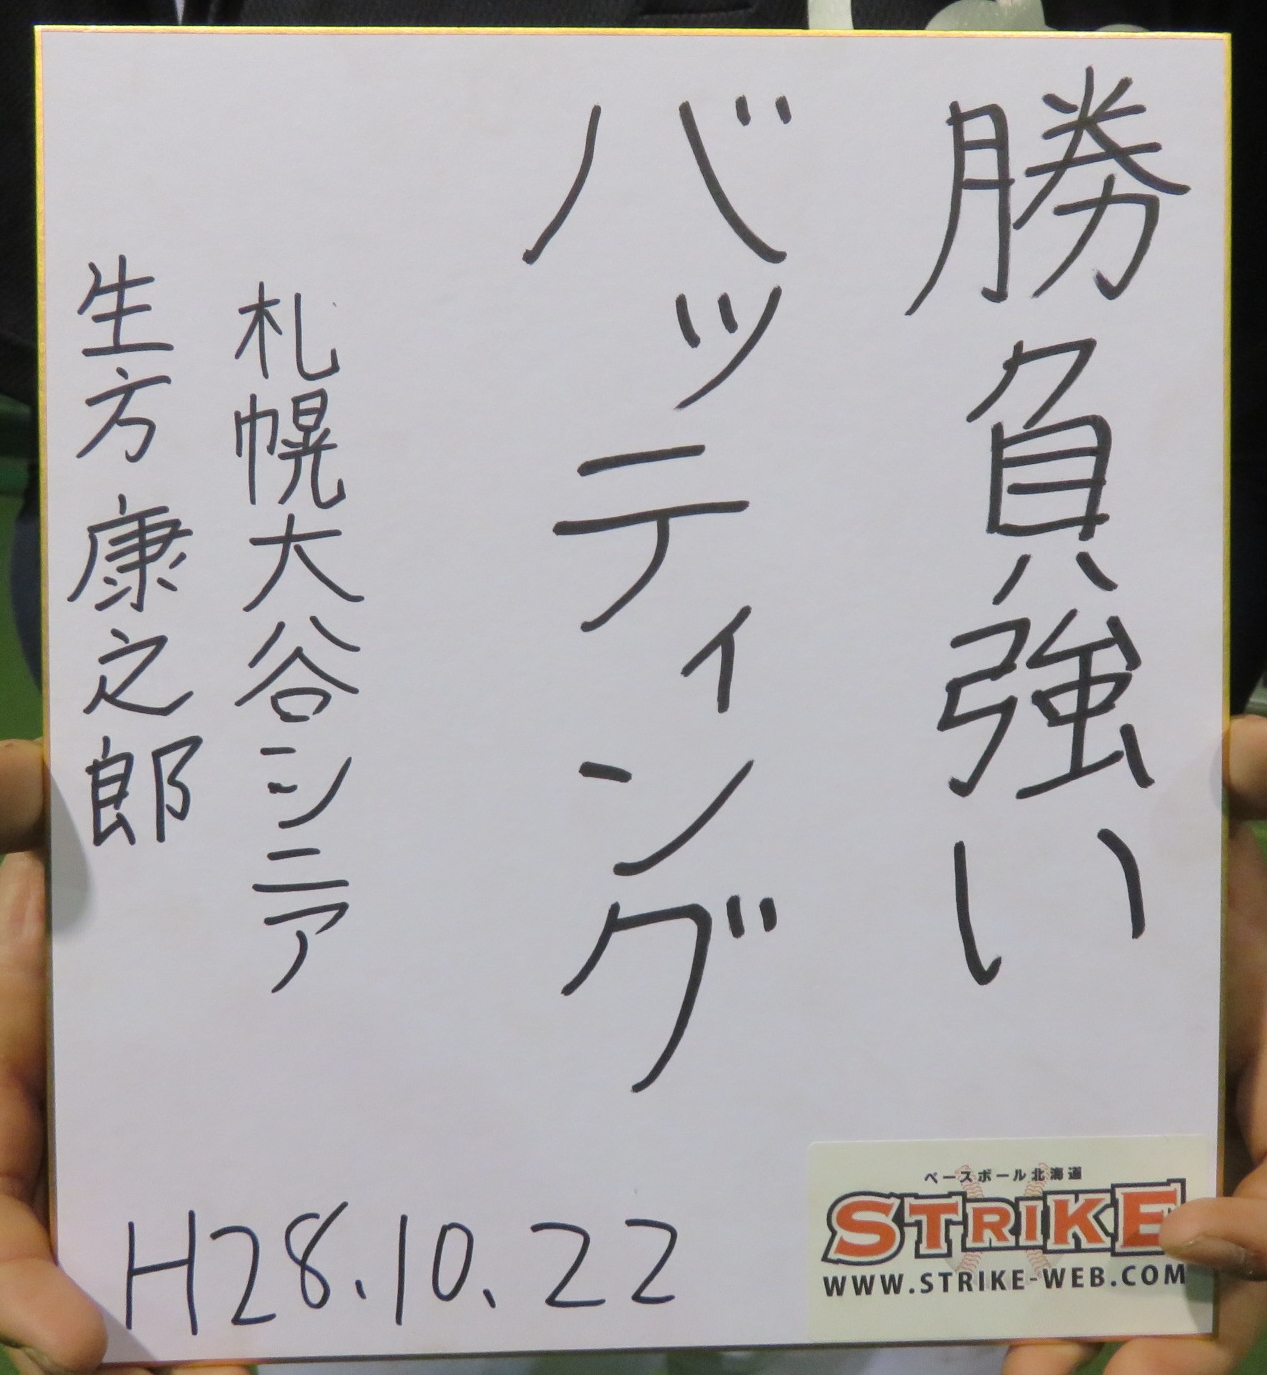 勝負強い
バッティング
札幌大谷シニア
生方康之郎
H28.10.22
ベースボール北海道
STRIKE
WWW.STRIKE-WEB.COM